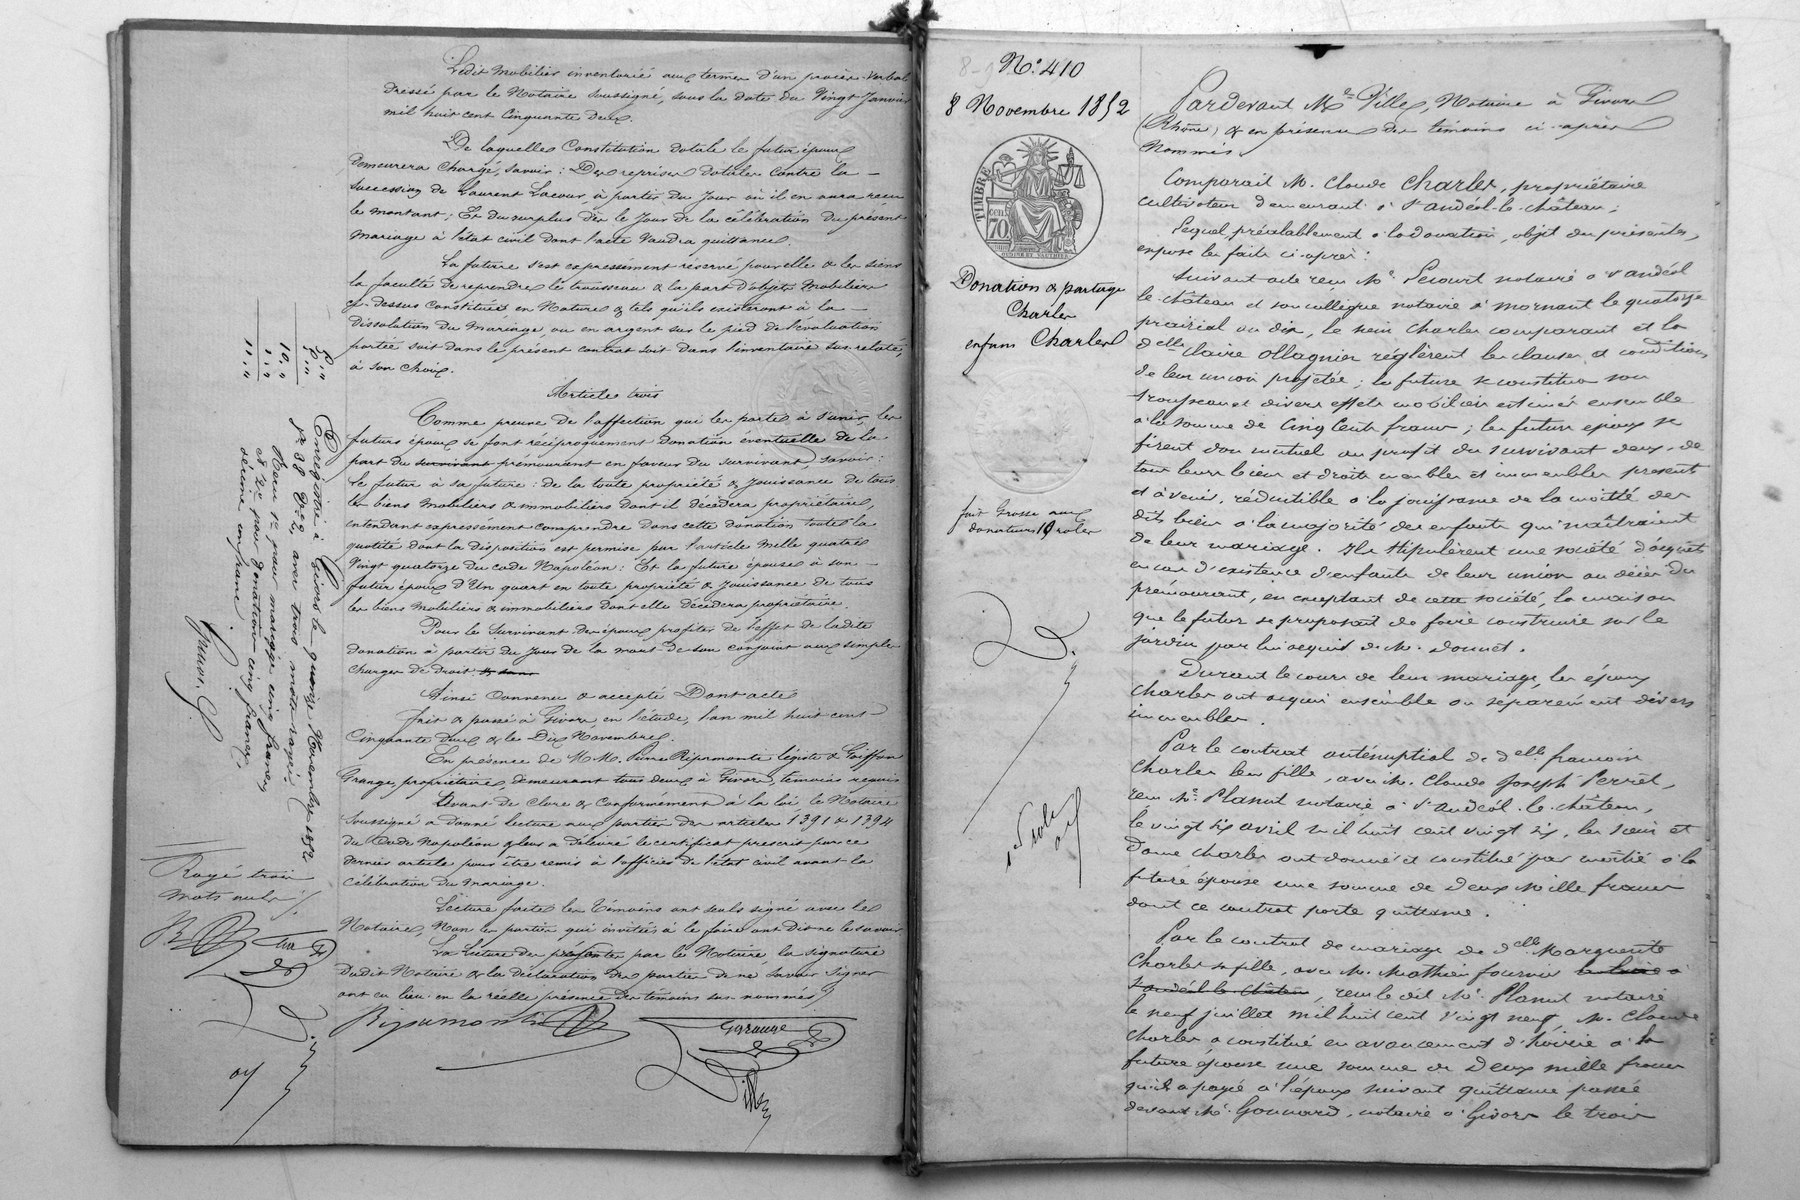 Ledit mobilier inventorié aux termes d'un procès-verbal
dressé par le Notaire soussigné, sous la date du Vingt Janvier
mil huit cent Cinquante deux.
De laquelle Constitution dotale le futur époux
demeurera Chargé, savoir : Des reprises dotales contre la
succession de Laurent Lacour à partir du jour où il en aura reçu
le montant ; Et du surplus dès le jour de la célébration du présent
mariage à l'état civil dont l'acte Vaudra quittance.
La future s'est expressément réservé pour elle & les siens
la faculté de reprendre le trousseau & la part d'objets Mobiliers
ci-dessus constitués en Nature & tels qu'ils existeront à la
dissolution du mariage ou en argent sur le pied de l'évaluation
portée soit dans le présent contrat soit dans l'inventaire sus-relaté,
à son choix.
Article trois
Comme preuve de l'affection qui les porte à s'unir, les
futurs époux se font réciproquement donation éventuelle de la
part du survivant prémourant en faveur du survivant, savoir :
Le futur à sa future : de la toute propriété & jouissance de tous
les biens mobiliers & immobiliers dont il décédera propriétaire,
entendant expressément comprendre dans cette donation toute la
quotité dont la disposition est permise par l'article Mille quatre
Vingt quatorze du code Napoléon : Et la future épouse à son
futur époux d'Un quart en toute propriété & jouissance de tous
les biens Mobiliers & immobiliers dont elle décédera propriétaire.
Pour le Survivant des époux profiter de l'effet de ladite
donation à partir du jour de la mort de son conjoint aux simples
charges de droit. & sans
Ainsi Convenu & accepté Dont acte
fait & passé à Givors, en l'étude, l'an mil huit cent
Cinquante deux & le Dix Novembre.
En présence de M.M. Pierre Ripamonti légiste &
Grange, propriétaire, demeurant tous deux à Givors, témoins requis
Avant de Clore & conformément à la loi le Notaire
Soussigné a donné lecture aux parties des articles 1391 & 1394
du Code Napoléon & leur a délivré le certificat prescrit par ce
dernier article pour être remis à l'officier de l'état civil avant la
célébration du mariage.
Lecture faite les témoins ont seuls signé avec le
Notaire, Non les parties qui invitées à le faire ont dit ne le savoir
La lecture des présentes par le Notaire, la signature
dudit Notaire & la déclaration des parties de ne savoir Signer
ont eu lieu en la réelle présence des témoins sus-nommés
Ripamonti
Grange
Ville
Enregistré à Givors le quinze Novembre 1852
avec trois mots rayés
Reçu 1° pour mariage cinq francs
& 2° pour Donation cinq francs,
décime un franc.
10."
1."
11."
Rayé trois
mots nuls
N° 410
8 Novembre 1852
TIMBRE
70
Donation & partage
Charles
enfans Charles
fait Grosse aux
donateurs 10 roles
Pardevant Me Ville, Notaire à Givors
(Rhône) & en présence des témoins ci-après
Nommés.
Comparait M. Claude Charles, propriétaire
cultivateur demeurant à St andéol-le-château ;
Lequel, préalablement à la donation, objet des présentes,
expose les faits ci-après :
Suivant acte reçu Me Lecourt notaire à St andéol
le château et son collègue notaire à Mornant le quatorze
prairial an dix, le sieur Charles comparant et la
delle Claire Ollagnier réglèrent les clauses et conditions
de leur union projetée ; la future se constitua son
trousseau et divers effets mobiliers estimés ensemble
à la somme de Cinq Cents francs ; les futurs époux se
firent don mutuel au profit du survivant deux, de
tous leurs biens et droits meubles et immeubles présents
et à venir, réductible à la jouissance de la moitié des
dits biens à la majorité des enfants qui naîtraient
de leur mariage. Ils stipulèrent une société d'acquêts
en cas d'existence d'enfants de leur union au décès du
prémourant, en exceptant de cette société, la maison
que le futur se proposait de faire construire sur le
jardin par lui acquis de M. Donnet.
Durant le cours de leur mariage, les époux
Charles ont acquis ensemble ou séparément divers
immeubles.
Par le contrat anténuptial de delle françoise
Charles leur fille, avec M. Claude Joseph Perret,
reçu Me Planut notaire à St andéol-le-château,
le vingt six avril mil huit cent vingt six, les sieur et
Dame Charles ont donné et constitué par moitié à la
future épouse une somme de Deux mille francs
dont ce contrat porte quittance.
Par le contrat de mariage de delle Marguerite
Charles sa fille, avec M. Mathieu fournier
St andéol-le-château, reçu le dit Me Planut notaire
le neuf juillet mil huit cent vingt neuf, M. Claude
Charles a constitué en avancement d'hoirie à la
future épouse une somme de Deux mille francs
qu'il a payée à l'époux suivant quittance passée
devant Me Gonnard, notaire à Givors le trois